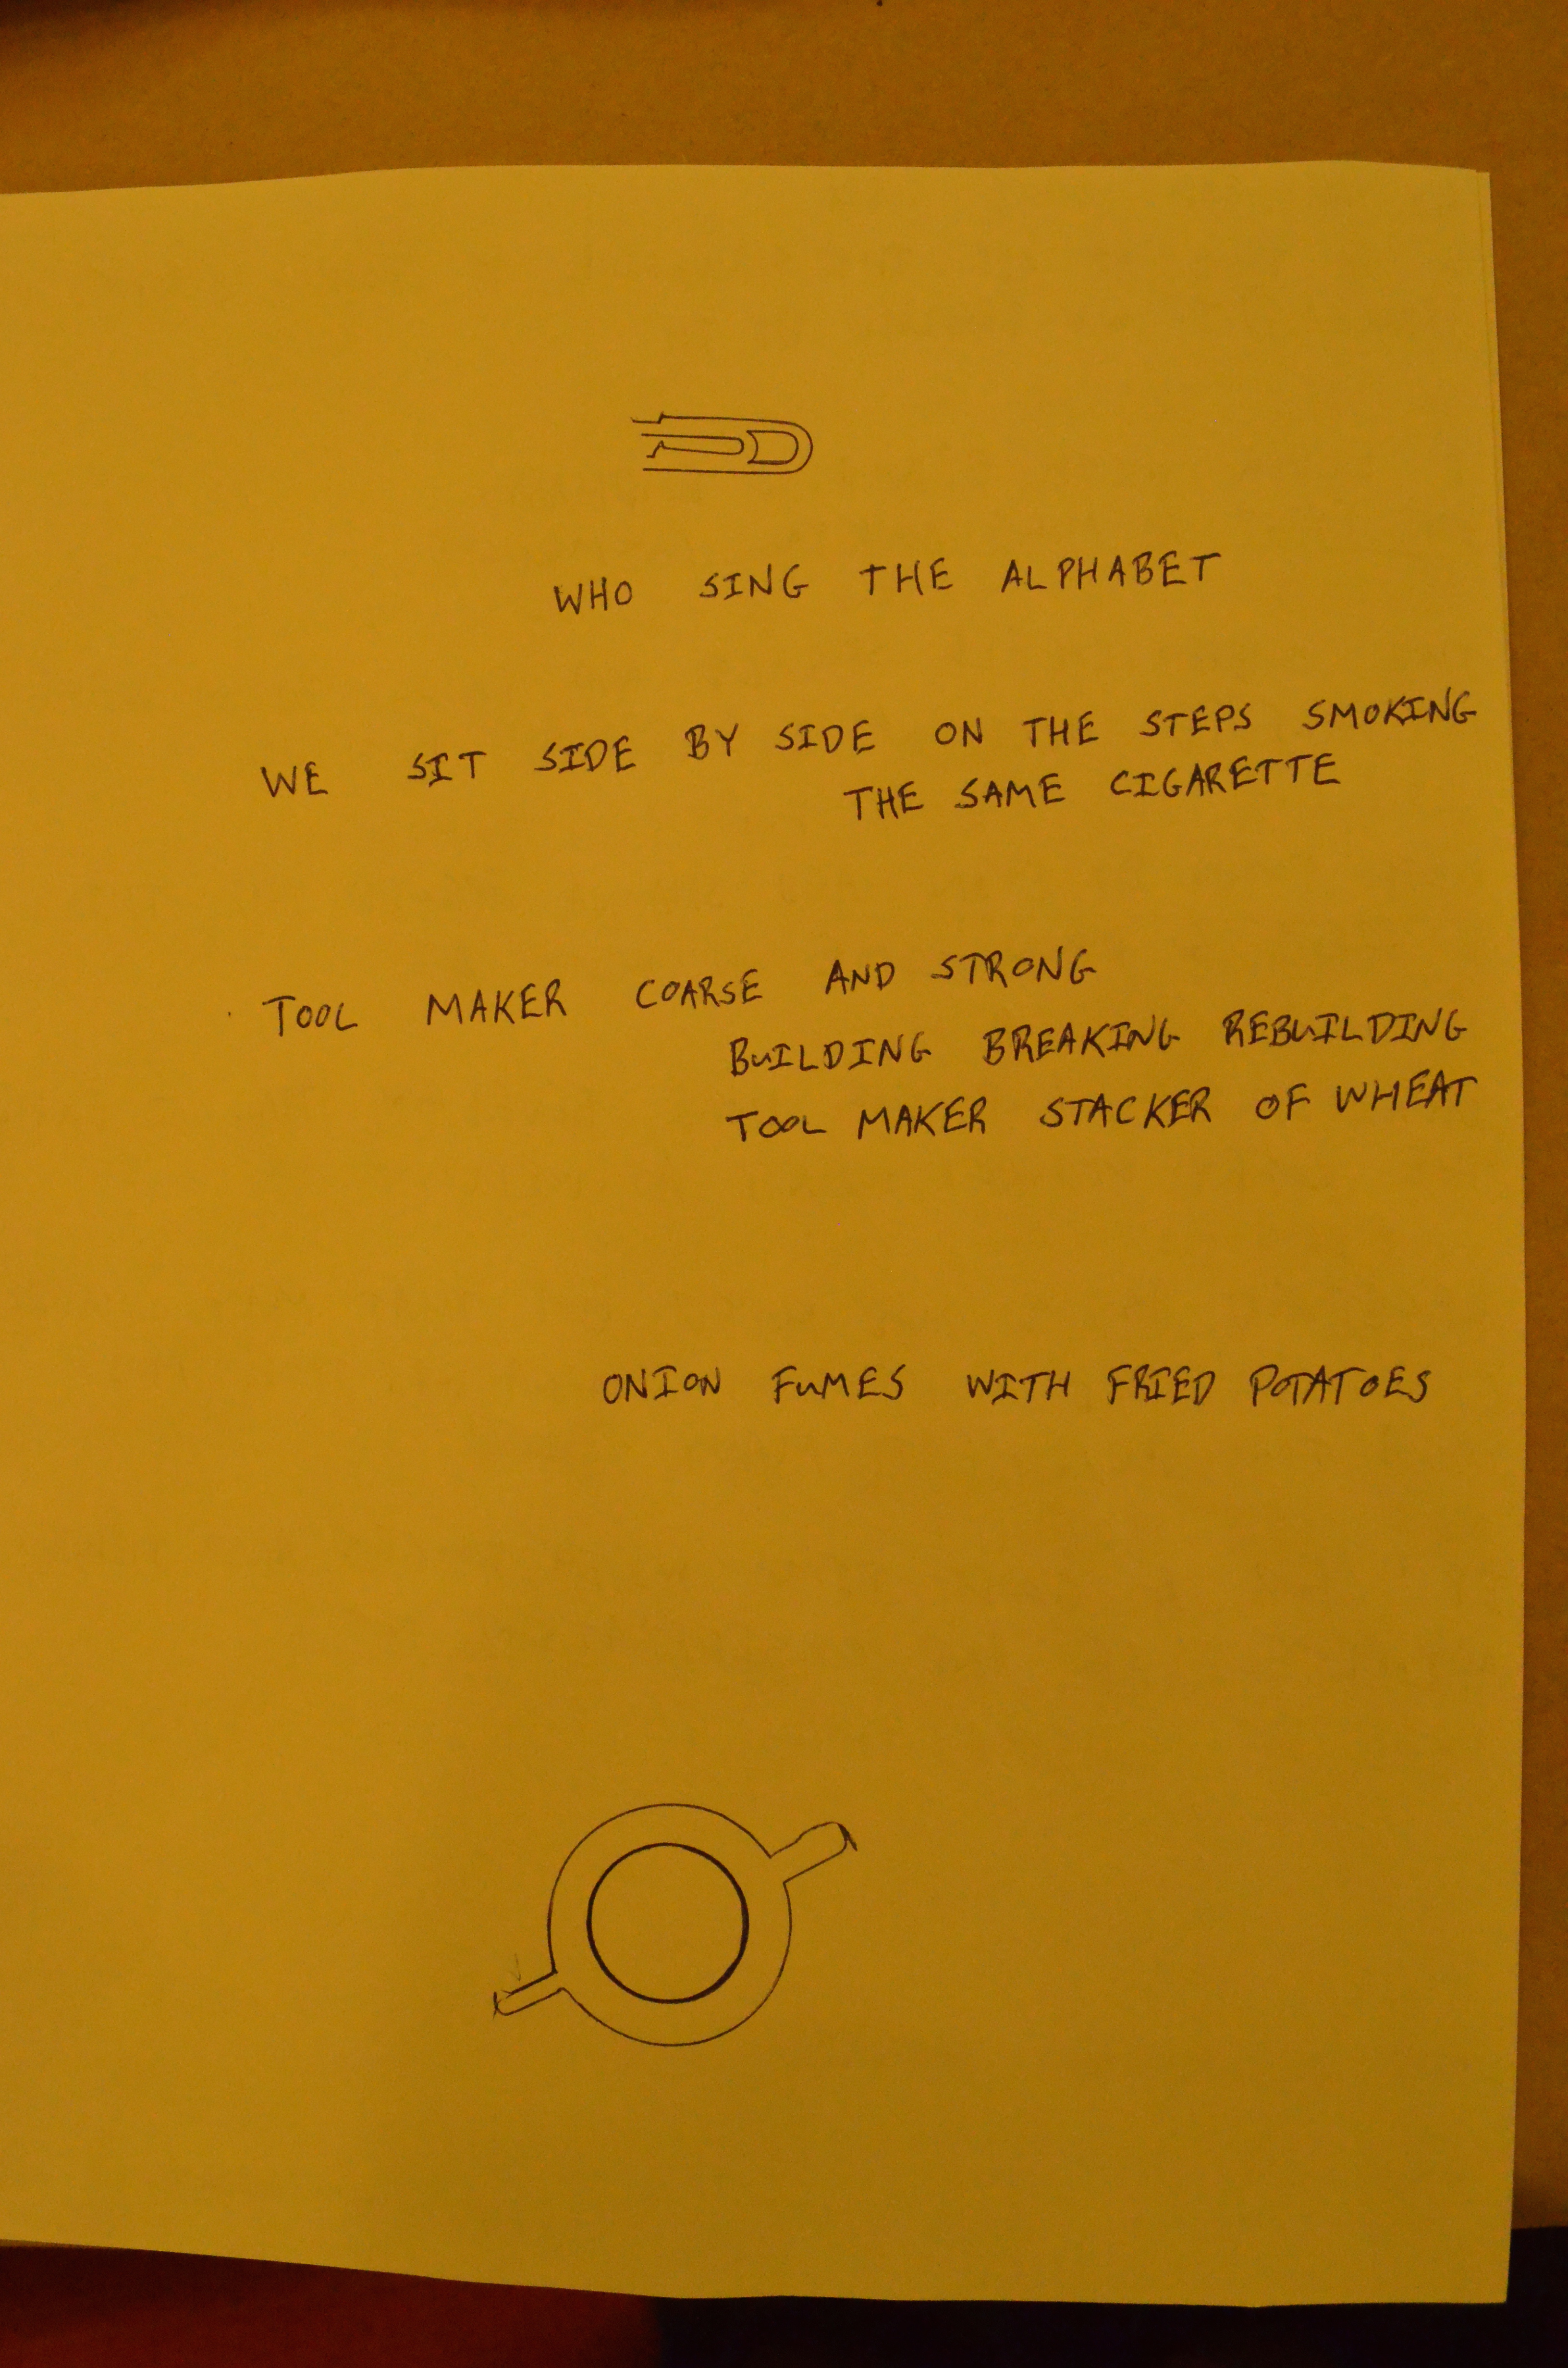 WHO SING THE ALPHABET
WE SIT SIDE BY SIDE ON THE STEPS SMOKING
THE SAME CIGARETTE
TOOL MAKER COARSE AND STRONG
BUILDING BREAKING REBUILDING
TOOL MAKER STACKER OF WHEAT
ONION FUMES WITH FRIED POTATOES